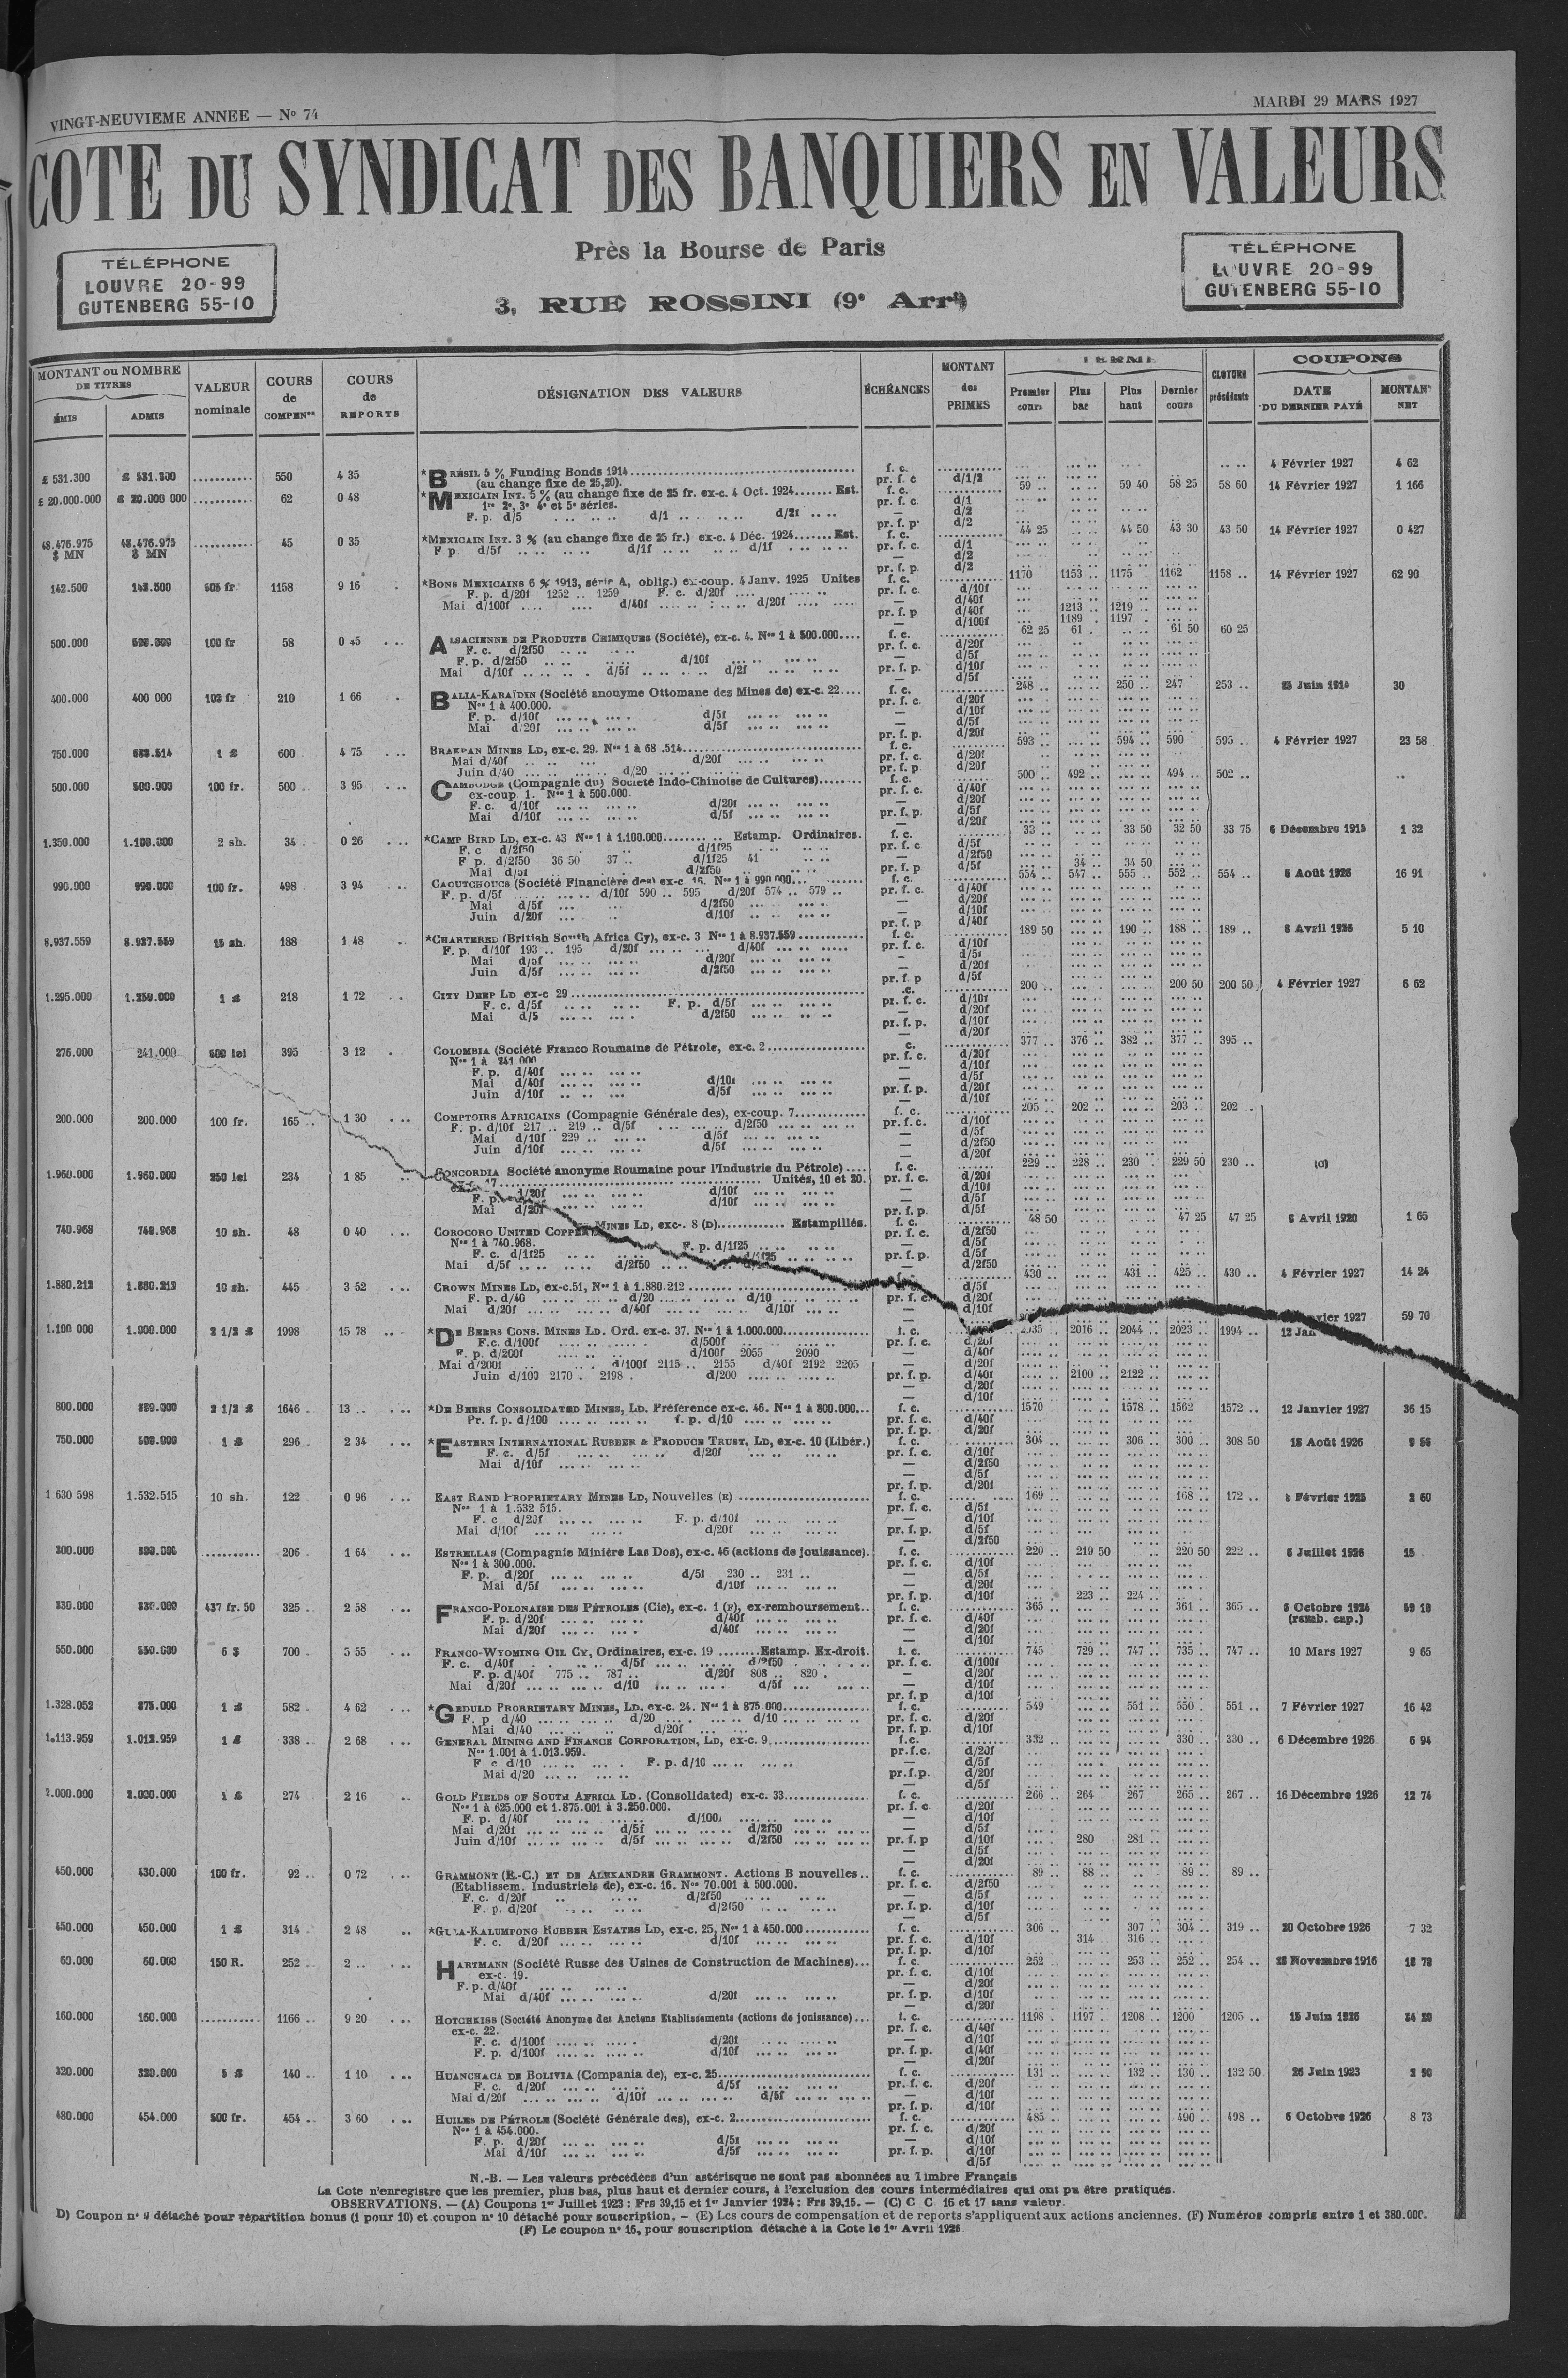 VINGT-NEUVIEME ANNEE — No 74
MARDI 29 MARS 1927
COTE DU SYNDICAT DES BANQUIERS EN VALEURS
Près la Bourse de Paris
3, RUE ROSSINI (9e Arrt)
TÉLÉPHONE
LOUVRE 20-99
GUTENBERG 55-10
TÉLÉPHONE
LOUVRE 20-99
GUTENBERG 55-10
MONTANT ou NOMBRE DE TITRES
ÉMIS ADMIS
VALEUR nominale
COURS de COMPENon
COURS de REPORTS
DÉSIGNATION DES VALEURS
ÉCHÉANCES
MONTANT des PRIMES
TERME
Premier cours Plus bas Plus haut Dernier cours
CLOTURE précédente
COUPONS
DATE DU DERNIER PAYÉ MONTANT NET
£ 531.300 £ 531.300 .......... 550 4 35 *BRÉSIL 5 % Funding Bonds 1914 f. c. 4 Février 1927 4 62
(au change fixe de 25,20). pr. f. c d/1/2
£ 20.000.000 £ 20.000 000 .......... 62 0 48 *MEXICAIN INT. 5 % (au change fixe de 25 fr. ex-c. 4 Oct. 1924....... Est. f. c. 59 .. 59 40 58 25 58 60 14 Février 1927 1 166
1re 2e, 3e 4e et 5e séries. pr. f. c. d/1
F. p. d/5 d/1 d/2f — d/2
pr. f. p. d/2
48.476.975 $ MN 48.476.975 $ MN .......... 45 0 35 *MEXICAIN INT. 3 % (au change fixe de 25 fr.) ex-c. 4 Déc. 1924....... Est. f. c. 44 25 44 50 43 30 43 50 14 Février 1927 0 427
F p. d/5f d/1f d/1f pr. f. c. d/1
— d/2
pr. f. p. d/2
142.500 142.500 505 fr. 1158 9 16 *BONS MEXICAINS 6 % 1913, série A, oblig.) ex-coup. 4 Janv. 1925 Unites f. c. 1170 1153 .. 1175 1162 1158 .. 14 Février 1927 62 90
F. p. d/20f 1252 .. 1259 F. c. d/20f pr. f. c. d/10f
Mai d/100f d/40f d/20f — d/40f
pr. f. p d/40f 1213 .. 1219 ..
— d/100f 1189 . 1197 .
500.000 500.000 100 fr 58 0 45 ALSACIENNE DE PRODUITS CHIMIQUES (Société), ex-c. 4. Nos 1 à 500.000.... f. c. 62 25 61 . 61 50 60 25
F. c. d/2f50 pr. f. c. d/20f
F. p. d/2f50 d/10f — d/5f
Mai d/10f d/5f d/2f pr. f. p. d/10f
— d/5f
400.000 400 000 102 fr 210 1 66 BALIA-KARAÏDIN (Société anonyme Ottomane des Mines de) ex-c. 22.... f. c. 248 .. 250 .. 247 253 .. 30
Nos 1 à 400.000. pr. f. c. d/20f
F. p. d/10f d/5f — d/10f
Mai d/20f d/5f — d/5f
pr. f. p. d/20f
750.000 1 £ 600 4 75 BRAKPAN MINES LD, ex-c. 29. f. c. 593 .. 594 .. 590 595 .. 4 Février 1927 23 58
Mai d/40f d/20f pr. f. c. d/20f
Juin d/40 d/20 pr. f. p. d/20f
500.000 500.000 100 fr. 500 .. 3 95 CAMBODGE (Compagnie du) Société Indo-Chinoise de Cultures)........ f. c. 500 .. 492 .. 494 .. 502 ..
ex-coup. 1. Nos 1 à 500.000. pr. f. c. d/40f
F. c. d/10f d/20f — d/20f
Mai d/10f d/5f pr. f. p. d/5f
— d/20f
1.350.000 1.100.000 2 sh. 34 . 0 26 *CAMP BIRD LD, ex-c. 43 Nos 1 à 1.100.000........ .. Estamp. Ordinaires. f. c. 33 .. 33 50 32 50 33 75 6 Décembre 1915 1 32
F. c d/2f50 d/1f25 pr. f. c d/5f
F p. d/2f50 36 50 37 .. d/1f25 41 — d/2f50
Mai d/5f d/2f50 pr. f. p d/5f 34 .. 34 50
990.000 990.000 100 fr. 498 . 3 94 CAOUTCHOUCS (Société Financière des) ex-c 16. Nos 1 à 990 000... f. c. 554 .. 547 .. 555 .. 552 .. 554 .. 6 Août 1926 16 91
F. p. d/5f d/10f 590 .. 595 d/20f 574 .. 579 .. pr. f. c. d/40f
Mai d/5f d/2f50 — d/20f
Juin d/20f d/10f — d/10f
pr. f. p d/40f
8.937.559 8.937.559 15 sh. 188 1 48 *CHARTERED (British South Africa Cy), ex-c. 3 Nos 1 à 8.937.559 ............ f. c. 189 50 190 .. 188 .. 189 .. 8 Avril 1926 5 10
F. p. d/10f 193 .. 195 d/20f d/40f pr. f. c. d/10f
Mai d/5f d/20f - d/5f
Juin d/5f d/2f50 — d/20f
pr. f. p d/5f
1.295.000 1.250.000 1 £ 218 1 72 CITY DEEP LD ex-c 29 200 .. 200 50 200 50 4 Février 1927 6 62
F. c. d/5f F. p. d/5f pr. f. c. d/10f
Mai d/5 d/2f50 — d/20f
pr. f. p. d/10f
— d/20f
276.000 241.000 500 lei 395 3 12 COLOMBIA (Société Franco Roumaine de Pétrole, ex-c. 2 c. 377 .. 376 .. 382 .. 377 .. 395 ..
Nos 1 à 241 000 pr. f. c. d/20f
F. p. d/40f — d/10f
Mai d/40f d/10f — d/5f
Juin d/10f d/5f pr. f. p. d/20f
— d/10f
200.000 200.000 100 fr. 165 .. 1 30 COMPTOIRS AFRICAINS (Compagnie Générale des), ex-coup. 7............. f. c. 205 .. 202 .. 203 .. 202 ..
F. p. d/10f 217 .. 219 .. d/5f d/2f50 pr. f. c. d/10f
Mai d/10f 229 .. d/5f — d/5f
Juin d/10f d/5f — d/2f50
— d/20f
1.960.000 1.960.000 250 lei 234 1 85 CONCORDIA Société anonyme Roumaine pour l'Industrie du Pétrole) .... f. c. 229 .. 228 .. 230 . 229 50 230 .. (C)
17 Unités, 10 et 20. pr. f. c. d/20f
F. p. d/20f d/10f — d/10f
Mai d/20f d/10f — d/5f
pr. f. p. d/5f
740.968 740.968 10 sh. 48 0 40 COROCORO UNITED COPPER MINES LD, exc-. 8 (D)............. Estampillés. f. c. 48 50 47 25 47 25 8 Avril 1920 1 65
Nos 1 à 740.968. F. p. d/1f25 pr. f. c. d/2f50
F. c. d/1f25 d/1f25 — d/5f
Mai d/5f d/2f50 pr. f. p. d/5f
— d/2f50
1.880.212 1.880.212 10 sh. 445 3 52 CROWN MINES LD, ex-c.51, Nos 1 à 1.880.212 430 .. 431 .. 425 .. 430 .. 4 Février 1927 14 24
F. p. d/40 d/20 d/10 pr. f. c. d/5f
Mai d/20f d/40f d/10f — d/20f
d/10f
1.100 000 1.000.000 2 1/2 £ 1998 15 78 *DE BEERS CONS. MINES LD. Ord. ex-c. 37. Nos 1 à 1.000.000................ f. c. 2035 2016 .. 2044 .. 2023 .. 1994 .. 12 Janvier 1927 59 70
F.c. d/100f d/500f pr. f. c. d/20f
F. p. d/200f d/100f 2055 2090 — d/40f
Mai d/200f d/100f 2115 .. 2155 d/40f 2192 2205 — d/20f
Juin d/100 2170 . 2198 . d/200 pr. f. p. d/40f 2100 .. 2122 ..
— d/20f
— d/10f
800.000 2 1/2 £ 1646 . 13 .. *DE BEERS CONSOLIDATED MINES, LD. Préférence ex-c. 46. Nos 1 à 800.000... f. c. 1570 1578 .. 1562 1572 .. 12 Janvier 1927 36 15
Pr. f. p. d/100 f. p. d/10 pr. f. c. d/40f
pr. f. p. d/20f
750.000 1 £ 296 . 2 34 *EASTERN INTERNATIONAL RUBBER & PRODUCE TRUST, LD, ex-c. 10 (Libér.) f. c. 304 .. 306 .. 300 .. 308 50 18 Août 1926 9 56
F. c. d/5f d/20f pr. f. c. d/10f
Mai d/10f — d/2f50
— d/5f
pr. f. p. d/20f
1 630 598 1.532.515 10 sh. 122 0 96 EAST RAND PROPRIETARY MINES LD, Nouvelles (E) f. c. 169 .. 168 .. 172 .. 2 60
Nos 1 à 1.532 515. pr. f. c. d/5f
F. c d/20f F. p. d/10f — d/10f
Mai d/10f d/20f pr. f. p. d/5f
— d/2f50
300.000 .......... 206 . 1 64 ESTRELLAS (Compagnie Minière Las Dos), ex-c. 46 (actions de jouissance). f. c. 220 .. 219 50 220 50 222 .. 6 Juillet 1926 15 .
Nos 1 à 300.000. pr. f. c. d/10f
F. p. d/20f d/5f 230 .. 231 .. — d/5f
Mai d/5f d/10f — d/20f
pr. f. p. d/10f 223 .. 224 ..
330.000 330.000 437 fr. 50 325 .. 2 58 FRANCO-POLONAISE DES PÉTROLES (Cie), ex-c. 1 (F), ex-remboursement.. f. c. 365 .. 361 .. 365 .. 6 Octobre 1924 59 10
F. p. d/20f d/40f pr. f. c. d/40f (remb. cap.)
Mai d/20f d/40f — d/20f
— d/10f
550.000 550.000 6 $ 700 . 5 55 FRANCO-WYOMING OIL CY, Ordinaires, ex-c. 19 ........Estamp. Ex-droit. f. c. 745 729 .. 747 .. 735 .. 747 .. 10 Mars 1927 9 65
F. c. d/40f d/5f d/2f50 pr. f. c. d/100f
F. p. d/40f 775 .. 787 .. d/20f 808 .. 820 . — d/20f
Mai d/20f d/10 d/5f — d/10f
pr. f. p d/10f
1.328.052 875.000 1 £ 582 . 4 62 *GEDULD PRORRIETARY MINES, LD. ex-c. 24. Nos 1 à 875.000................ f. c. 549 551 .. 550 . 551 .. 7 Février 1927 16 42
F. p d/40 d/20 d/10 pr. f. c. d/20f
Mai d/40 d/20f pr. f. p. d/10f
1.113.959 1.013.959 1 £ 338 .. 2 68 GENERAL MINING AND FINANCE CORPORATION, LD, ex-c. 9.................. f.c. 332 330 .. 330 .. 6 Décembre 1926 6 94
Nos 1.001 à 1.013.959. pr.f.c. d/20f
F c d/10 F. p. d/10 — d/5f
Mai d/20 pr.f.p. d/20f
— d/5f
2.000.000 2.000.000 1 £ 274 2 16 GOLD FIELDS OF SOUTH AFRICA LD. (Consolidated) ex-c. 33 f. c. 266 .. 264 267 265 .. 267 .. 16 Décembre 1926 12 74
Nos 1 à 625.000 et 1.875.001 à 3.250.000. pr. f. c d/20f
F. p. d/40f d/100f — d/10f
Mai d/20f d/5f d/2f50 — d/5f
Juin d/10f d/5f d/2f50 pr. f. p d/10f 280 281 ..
— d/5f
— d/20f
450.000 430.000 100 fr. 92 .. 0 72 GRAMMONT (E.-C.) ET DE ALEXANDRE GRAMMONT. Actions B nouvelles .. f. c. 89 .. 88 .. 89 .. 89 ..
(Etablissem. Industriels de), ex-c. 16. Nos 70.001 à 500.000. pr. f. c. d/2f50
F. c. d/20f d/2f50 — d/5f
F. p. d/20f d/2f50 pr. f. p. d/10f
— d/5f
450.000 450.000 1 £ 314 . 2 48 *GULA-KALUMPONG RUBBER ESTATES LD, ex-c. 25, Nos 1 à 450.000 ............ f. c. 306 .. 307 .. 304 .. 319 .. 20 Octobre 1926 7 32
F. c. d/20f d/10f pr. f. c. d/10f 314 316 ..
pr. f. p. d/10f
60.000 60.000 150 R. 252 .. 2 .. HARTMANN (Société Russe des Usines de Construction de Machines)... f. c. 252 .. 253 .. 252 .. 254 .. 28 Novembre 1916 18 78
ex-c. 19. pr. f. c. d/10f
F. p. d/40f — d/20f
Mai d/40f d/20f pr. f. p. d/10f
— d/20f
160.000 160.000 .......... 1166 .. 9 20 HOTCHKISS (Société Anonyme des Anciens Etablissements (actions de jouissance)... f. c. 1198 . 1197 .. 1208 .. 1200 1205 .. 15 Juin 1926 34 20
ex-c. 22. pr. f. c. d/40f
F. c. d/100f d/20f — d/10f
F. p. d/100f d/10f pr. f. p. d/40f
— d/20f
320.000 320.000 5 £ 140 .. 1 10 HUANCHACA DE BOLIVIA (Compania de), ex-c. 25 f. c. 131 .. 132 .. 130 .. 132 50 26 Juin 1923 2 90
F. c. d/20f d/5f pr. f. c. d/20f
Mai d/20f d/10f d/5f — d/10f
pr. f. p. d/10f
480.000 454.000 500 fr. 454 .. 3 60 HUILES DE PÉTROLE (Société Générale des), ex-c. 2 f. c. 485 .. 490 .. 498 .. 6 Octobre 1926 8 73
Nos 1 à 454.000. pr. f. c. d/20f
F. p. d/20f d/5f — d/10f
Mai d/10f d/5f pr. f. p. d/10f
d/5f
N.-B. — Les valeurs précédées d'un astérisque ne sont pas abonnées au Timbre Français
La Cote n'enregistre que les premier, plus bas, plus haut et dernier cours, à l'exclusion des cours intermédiaires qui ont pu être pratiqués.
OBSERVATIONS. — (A) Coupons 1er Juillet 1923 : Frs 39,15 et 1er Janvier 1924 : Frs 39,15. — (C) C C. 16 et 17 sans valeur.
D) Coupon no 9 détaché pour répartition bonus (1 pour 10) et coupon no 10 détaché pour souscription. — (E) Les cours de compensation et de reports s'appliquent aux actions anciennes. (F) Numéros compris entre 1 et 380.000.
(F) Le coupon no 16, pour souscription détaché à la Cote le 1er Avril 1926